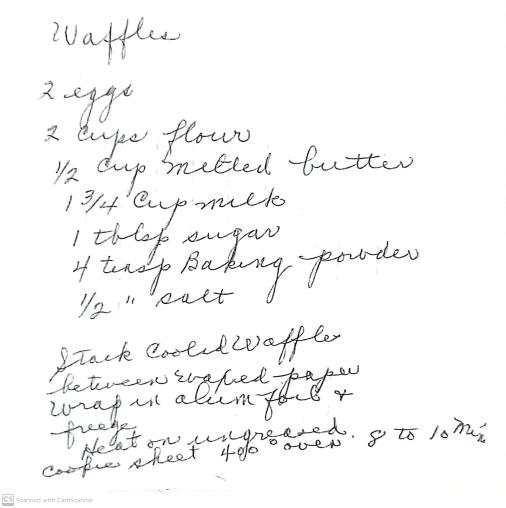 Waffles
2 eggs
2 cups flour
1/2 Cup melted butter
1 3/4 Cup milk
1 tblsp sugar
4 teasp Baking powder
1/2 " salt
Stack Cooled Waffles
between waxed paper
wrap in alum foil &
freeze
Heat on ungreased
cookie sheet 400° oven. 8 to 10 Min
CS Scanned with CamScanner